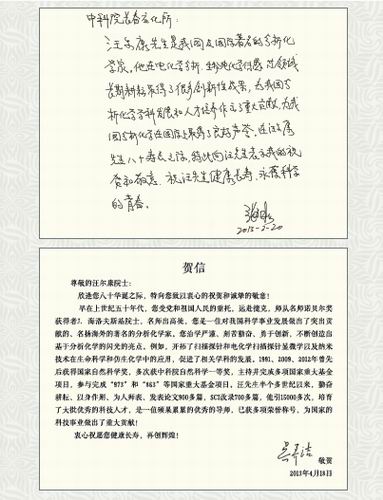 中科院长春应化所：
汪尔康先生是我国及国际著名的分析化
学家。他在电化学分析、生物电化学
长期耕耘取得了很多创新性成果，为我国分
析化学学科发展和人才培养作了重大贡献，为我
国分析化学在国际上赢得了良好声誉。在汪尔康
先生八十寿辰之际，特此向汪先生表示我的祝
贺和敬意。祝汪先生健康长寿，永葆科学
的青春。
2013-2-20
贺信
尊敬的汪尔康院士：
欣逢您八十华诞之际，特向您致以衷心的祝贺和诚挚的敬意！
早在上世纪五十年代，您受党和祖国人民的重托，远赴捷克，师从名师诺贝尔奖
获得者J. 海洛夫斯基院士，名师出高徒，您是一位对我国科学事业发展做出了突出贡
献的、名扬海外的著名的分析化学家，您治学严谨、刻苦勤奋、勇于创新，不断创造出
基于分析化学的闪光的亮点，例如，开拓了扫描探针和电化学扫描探针显微学以及纳米
技术在生命科学和仿生化学中的应用，促进了相关学科的发展，1991、2009、2012年曾先
后获得国家自然科学奖，多次获中科院自然科学一等奖，主持并完成多项国家重大基金
项目，参与完成“973”和“863”等国家重大基金项目，汪先生半个多世纪以来，勤奋
耕耘、以身作则、为人师表，发表论文900多篇，SCI收录700多篇，他引15000多次，培育
了大批优秀的科技人才，是一位硕果累累的优秀的导师，已获多项荣誉称号，为国家的
科技事业做出了重大贡献！
衷心祝愿您健康长寿，再创辉煌！
敬贺
2013年4月18日